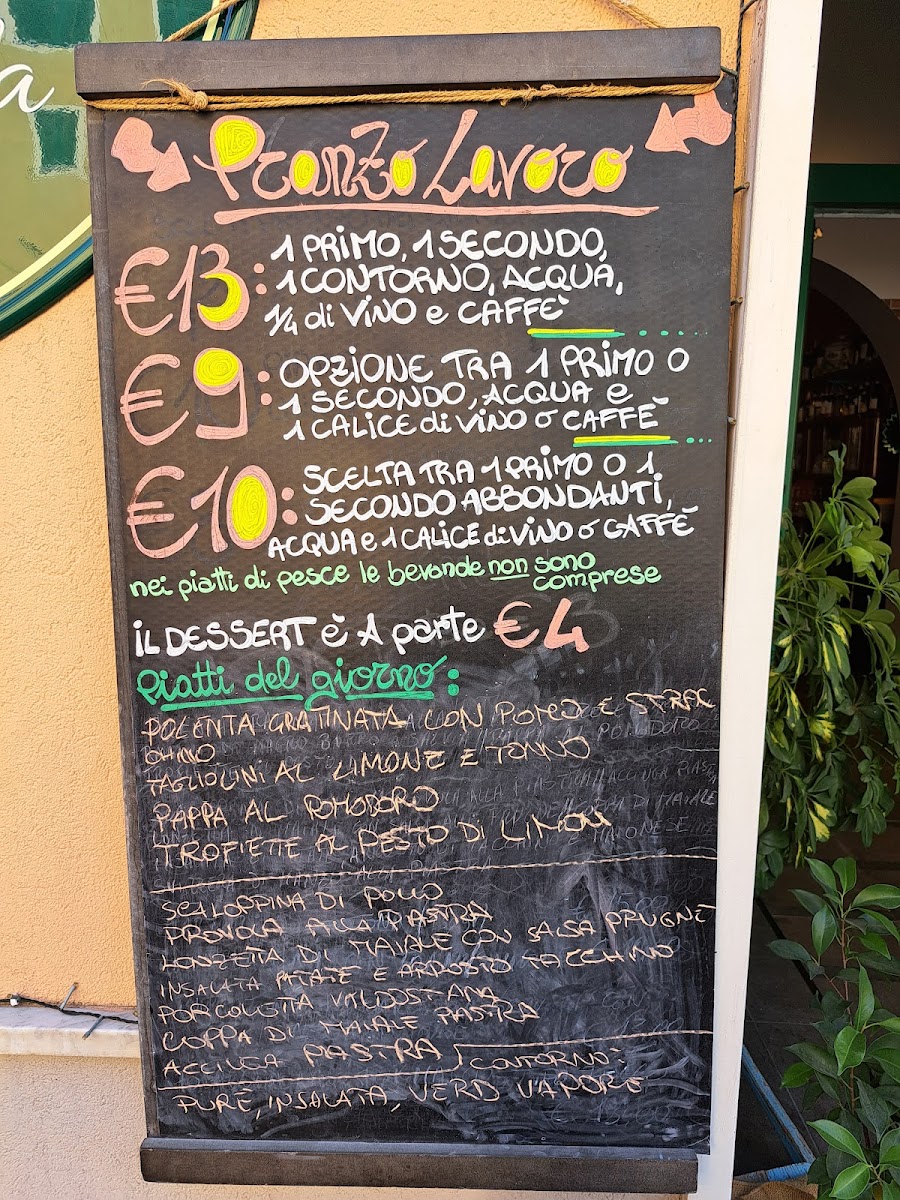 a
Pranzo Lavoro
€13: 1 PRIMO, 1 SECONDO,
1 CONTORNO, ACQUA,
1/4 di VINO e CAFFÈ
€9: OPZIONE TRA 1 PRIMO O
1 SECONDO, ACQUA e
1 CALICE di VINO o CAFFÈ
€10: SCELTA TRA 1 PRIMO O 1
SECONDO ABBONDANTI,
ACQUA e 1 CALICE di VINO o CAFFÈ
nei piatti di pesce le bevande non sono
comprese
iL DESSERT è A parte €4
Piatti del giorno:
POLENTA GRATINATA CON POMOD E STRAC
CHINO
TAGLIOLINI AL LIMONE E TONNO
PAPPA AL POMODORO
TROFIETTE AL PESTO DI LIMON
SCALOPPINA DI POLLO
PROVOLA ALLA PIASTRA
LONZETTA DI MAIALE CON SALSA PRUGNE
INSALATA PATATE E ARROSTO TACCHINO
VALDOSTANA
COPPA DI MAIALE PIASTRA
PIASTRA
CONTORNO:
PURÈ, INSALATA, VERD VAPORE